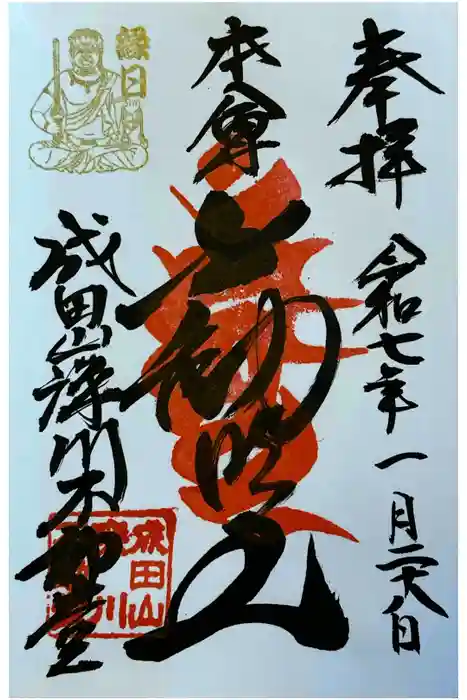 奉拝
令和七年一月二十八日
本尊
不動明王
成田山深川不動堂
縁日
成田山